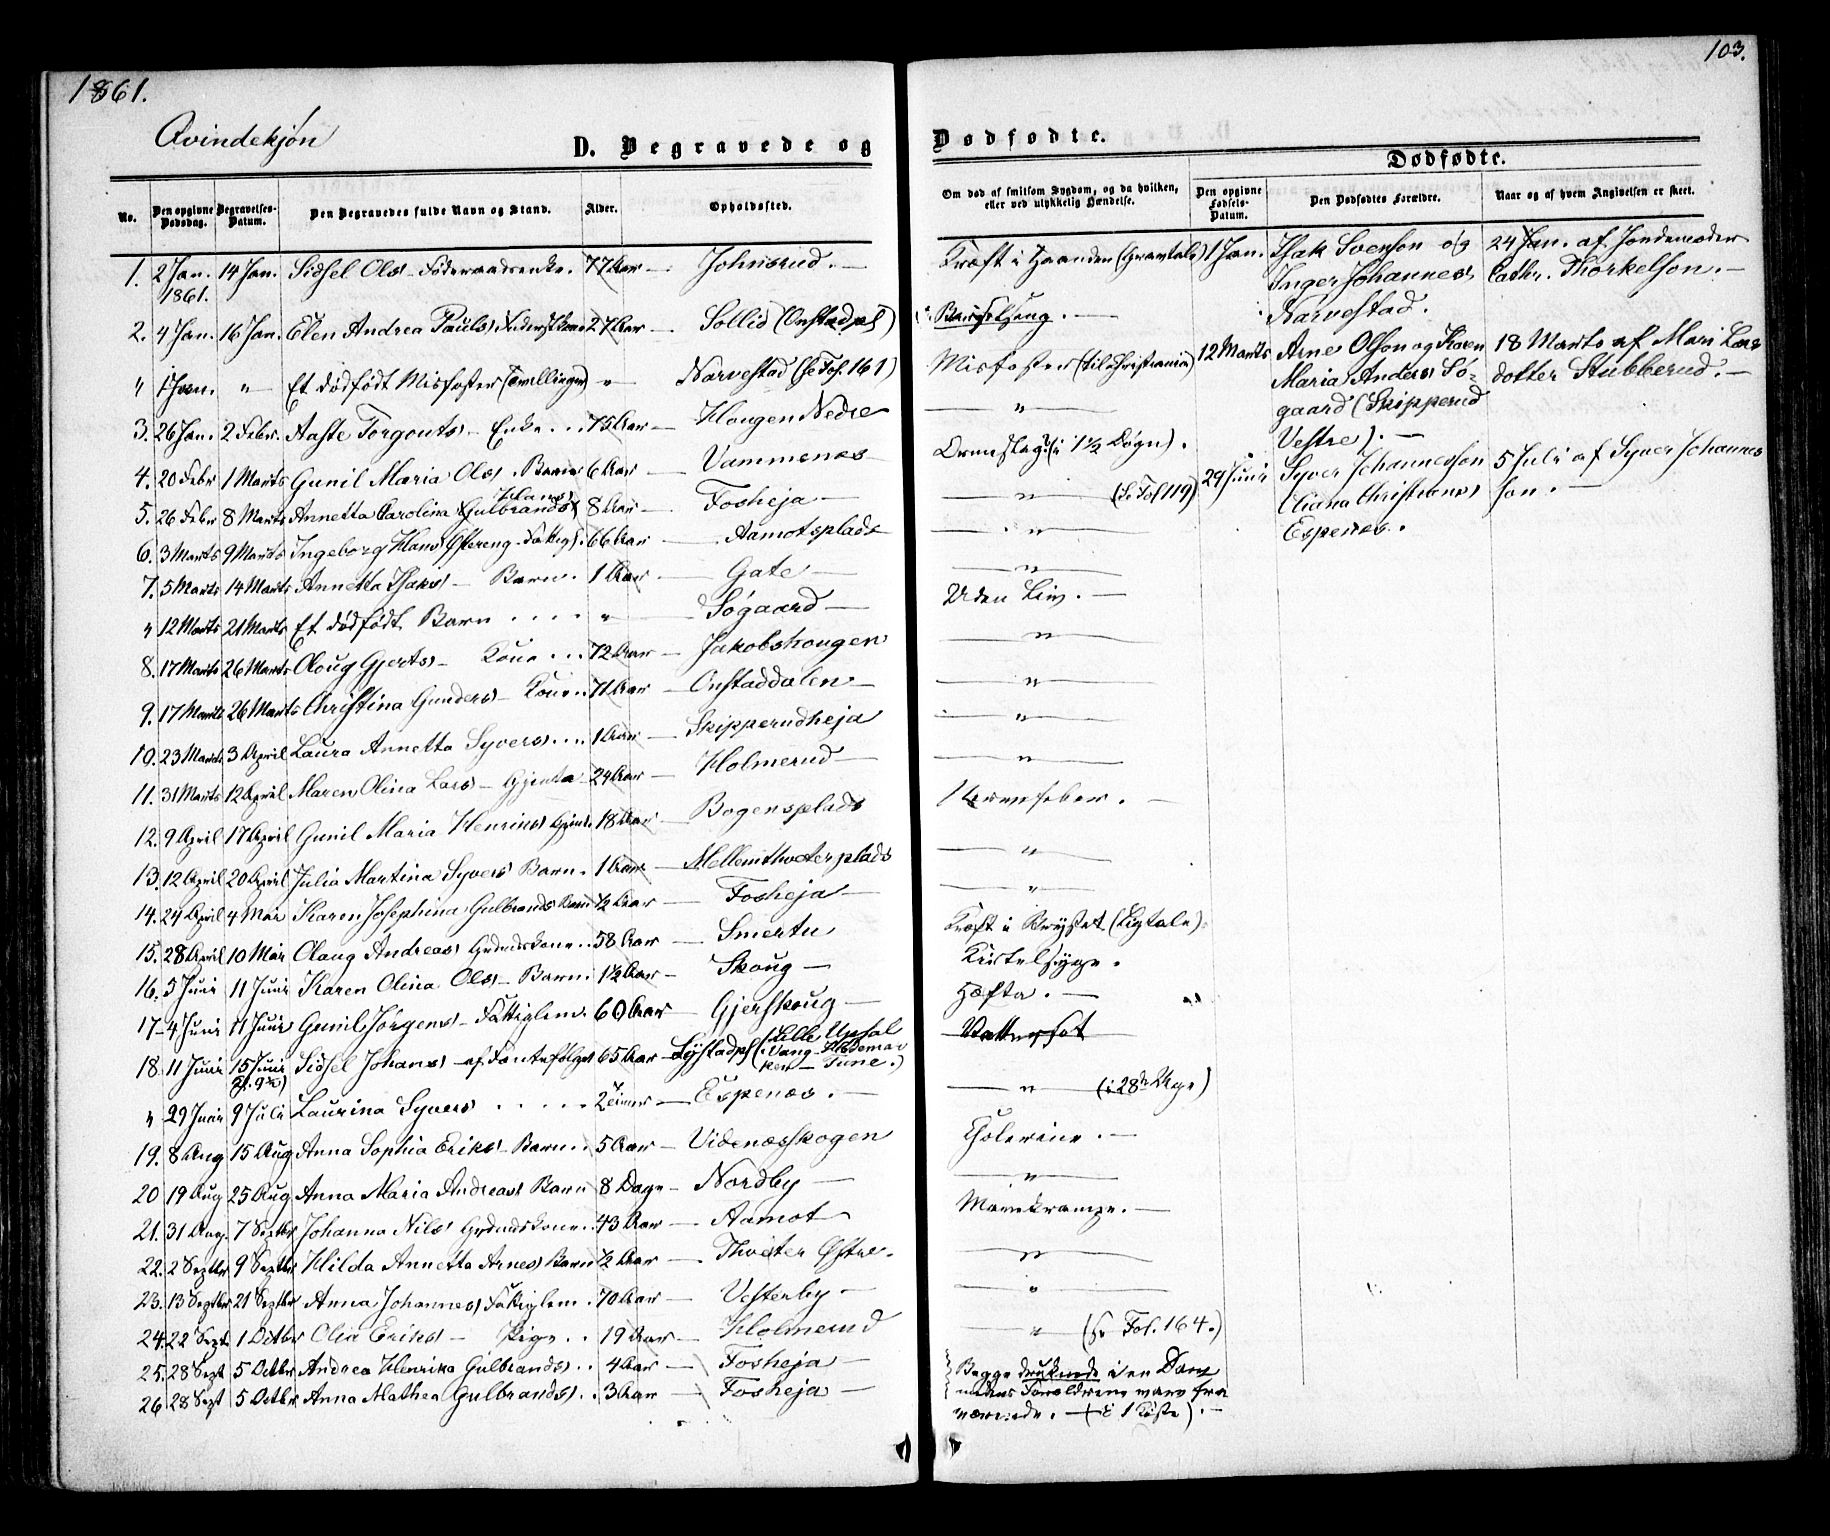 1861.
103.
Qvindekjøn
D. Begravede og
Dødfødte.
Dødfødte.
No.
Den opgivne Dødsdag.
Begravelses-Datum.
Den Begravedes fulde Navn og Stand.
Alder.
Opholdssted.
Om død af smitsom Sygdom, og da hvilken, eller ved ulykkelig Hændelse.
Den opgivne Fødsels-Datum.
Den Dødfødtes Forældre.
Naar og af hvem Angivelsen er skeet.
1. 2 Jan. 1861. 14 Jan. Sidsel Ols - Føderaadsenke. 77 Aar - Johnsrud. -
2. 4 Jan. 16 Jan. Elen Andrea Pauls 27 Aar - Sollid (Onstadpl)
" 1 Jan. " Et dødfødt Misfoster (Tvillinger) " Narvestad (se Fol 161)
3. 26 Jan. 2 Febr. Aaste Torgouts - Enke . . 75 Aar - Hougen Nedre
4. 20 Febr 1 Marts Gunil Maria Ols . Barn 6 Aar - Vammenes
5. 26 Febr 8 Marts Annetta Carolina Gulbrands Hans 8 Aar - Fosheja -
6. 3 Marts 9 Marts Ingeborg Hans Østereng - Fattigl. 66 Aar - Aamotsplads
7. 5 Marts 14 Marts Annetta Isaks - Barn . 1 Aar - Gate -
" 12 Marts 21 Marts Et dødfødt Barn . . . . " Søgaard -
8. 17 Marts 26 Marts Oloug Gjerts - Kone . . . 72 Aar - Jakobshougen
9. 17 Marts 26 Marts Christina Gunders - Kone . . 71 Aar - Onstaddalen -
10. 23 Marts 3 April Laura Annetta Syvers . . . 1 Aar - Skipperudheja
11. 31 Marts 12 April Maren Olina Lars - Gjenta - 24 Aar - Holmerud -
12. 9 April 17 April Gunil Maria Henriks Gjent. 18 Aar - Bogensplads
13. 12 April 20 April Julia Martina Syvers Barn . 1 Aar - Mellemthveterplads
14. 24 April 4 Mai Karen Josephina Gulbrands Barn ½ Aar - Fosheja -
15. 28 April 10 Mai Olaug Andreas Grdmdskone . . 58 Aar - Smertu
16. 5 Juni 11 Juni Karen Olina Ols - Barn . 1½ Aar - Skoug -
17 - 4 Juni 11 Juni Gunil Jørgens - Fattiglem . 60 Aar - Gjerskoug -
18. 11 Juni 15 Juni Sidsel Johans - af Fantefølget 65 Aar - Lystadpl (Lille Upsal i Vang - Hedemarken - Tune.)
" 29 Juni 9 Juli Laurina Syvers . . . . . 2 Timer - Espenæs . -
19. 8 Aug 15 Aug Anna Sophia Eriks - Barn . . 5 Aar - Vidnæsskogen
20 19 Aug 25 Aug Anna Maria Andreas Barn 8 Dage - Nordby -
21. 31 Aug. 7 Septbr Johanna Nils Grdmdskone . . 43 Aar - Aamot -
22. 2 Septbr 9 Septbr Hilda Annetta Arnes Barn ½ Aar - Thveter Østre.
23. 13 Septbr 21 Septbr Anna Johannes Fattiglem . 70 Aar - Vesterby -
24. 22 Sept 1 Octbr Olia Eriks - Pige . . 19 Aar - Holmerud
25. 28 Sept 5 Octbr Andrea Henrika Gulbrands . . 4 Aar - Fosheja -
26 28 Sept 5 Octbr Anna Mathea Gulbrands . 3 Aar - Fosheja -
Kræft i Haanden (Gravtale)
Barselseng . -
Misfoster (til Christiania)
- " -
Drumslag (i 1½ Døgn) .
- " - (se Fol 119)
- " -
- " -
Uden Liv. -
- " -
- " -
- " -
- " -
Nervefeber . -
- " -
- " -
Kræft i Brystet (Ligtale)
Kirtelsyge .
Hæfta . -
Vattersot
- " - (i 28de Uge)
Cholerine . -
- " -
Mavekrampe . -
- " -
- " -
- " - (se Fol. 164.)
Begge druknede i en Dam
medens Forældrene vare fra
værende . - (i 1 Kiste) . -
1 Jan. Isak Svenson og
Inger Johannes
Narvestad .
24 Jan. af Jordemoder
Cathr. Thorkelson . -
12 Marts Arne Olson og Karen
Maria Anders Sø-
gaard (Skipperud
Vestre) . -
18 Marts af Mari Lars
dotter Stubberud . -
29 Juni Syver Johannesson
Eliana Christians
Espenæs .
5 Juli af Syver Johannes
son . -